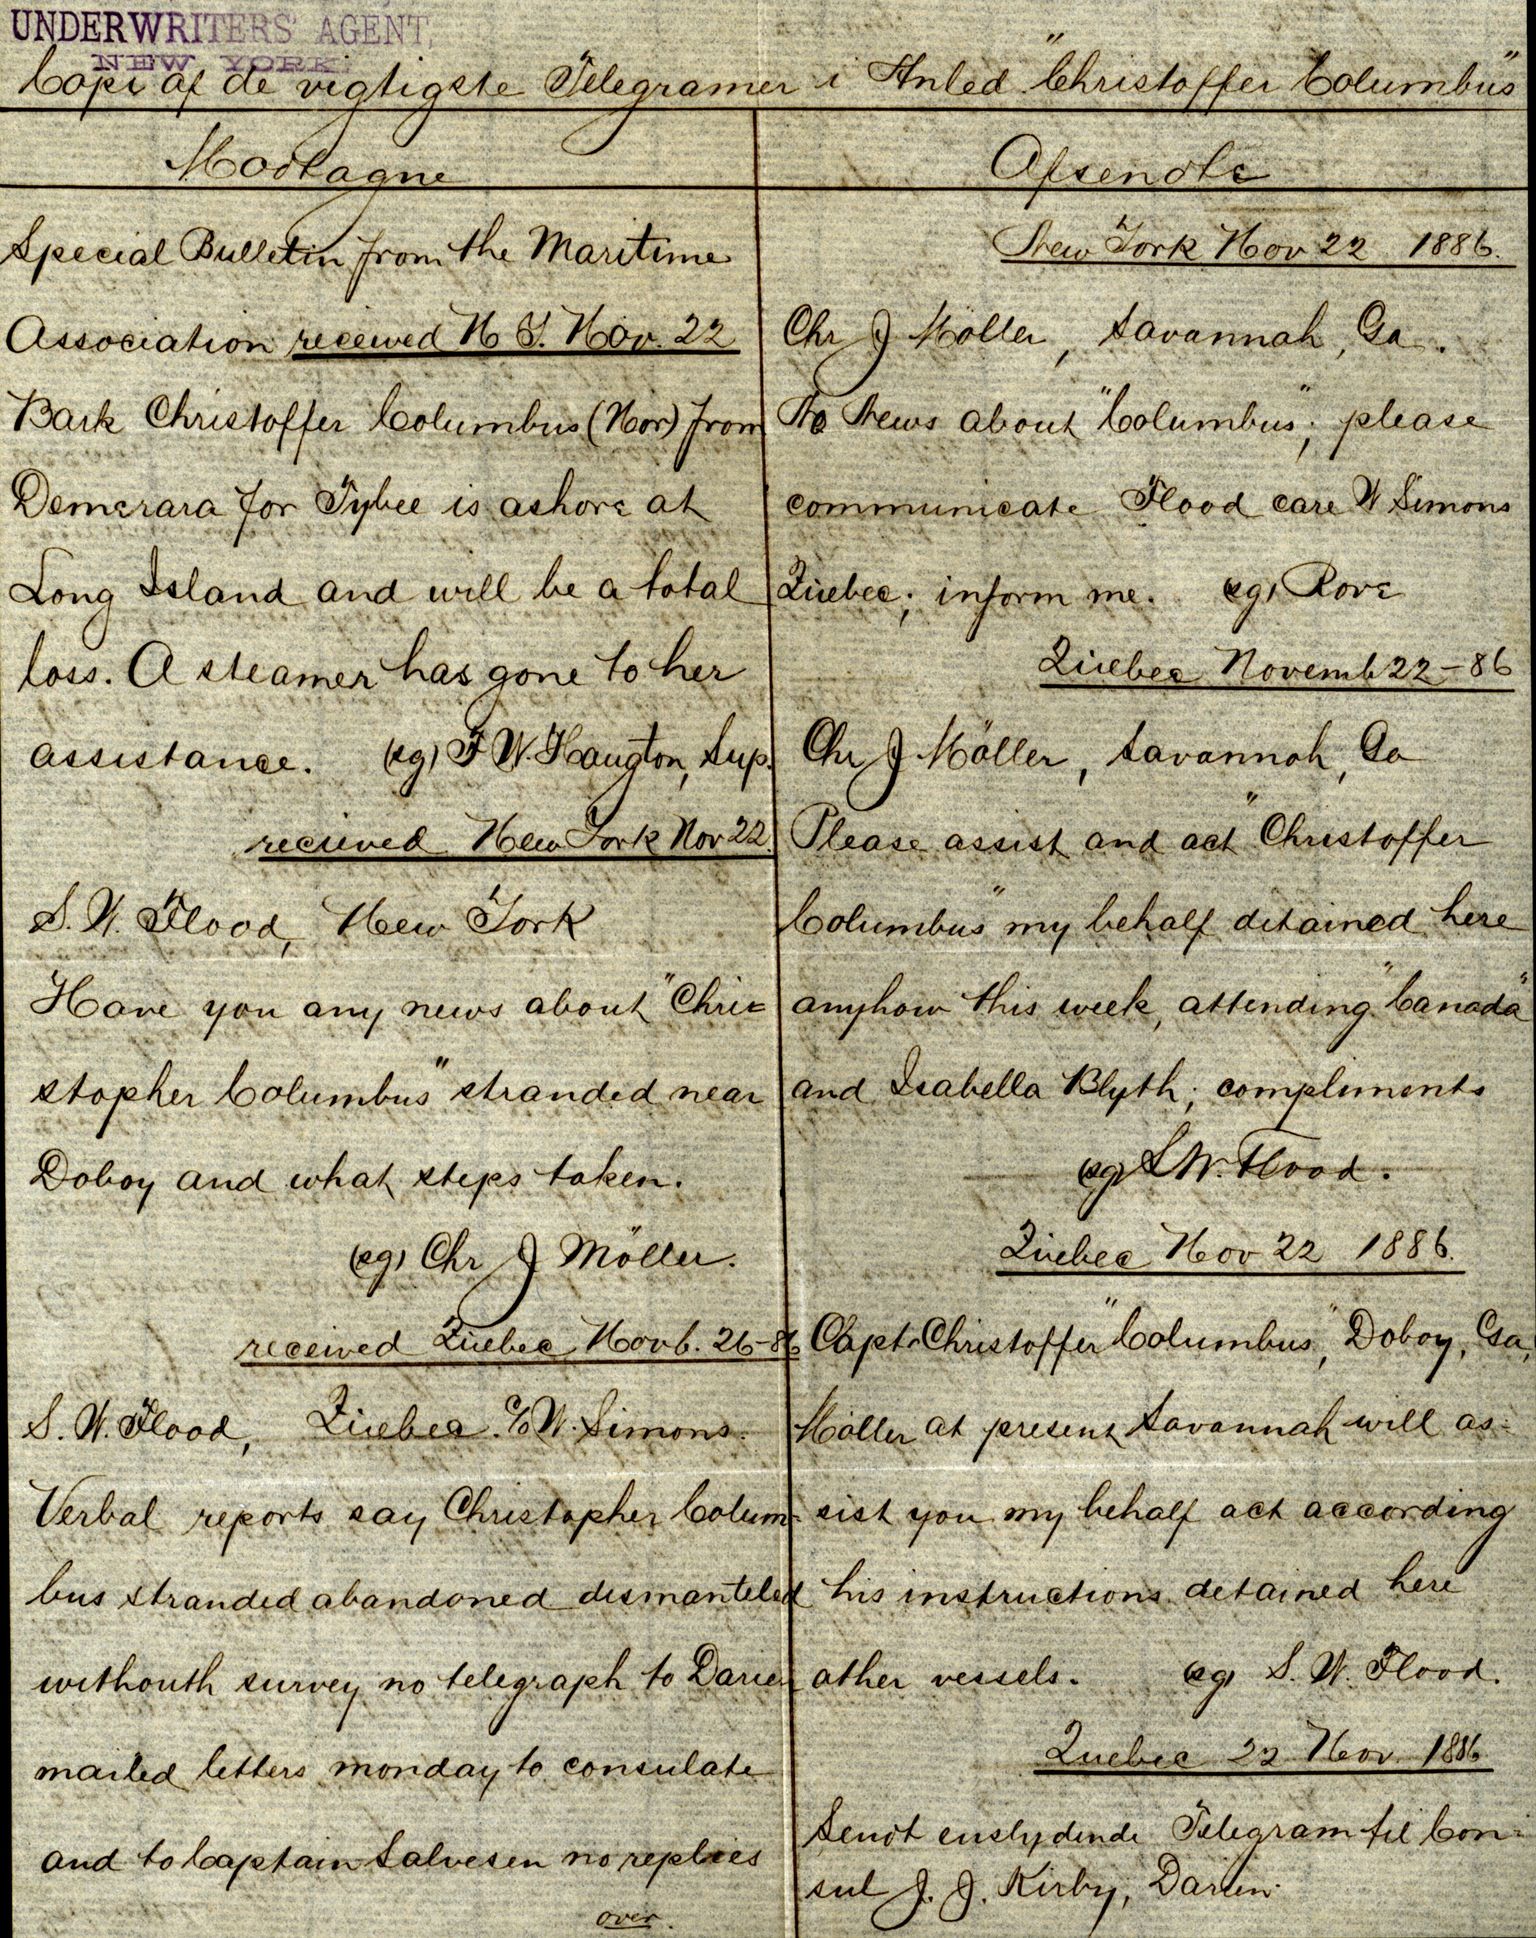 UNDERWRITERS' AGENT,
NEW YORK.
Copi af de vigtigste Telegramer i Anled. "Christoffer Columbus"
Modtagne
Special Bulletin from the Maritime
Association received N Y. Nov. 22
Bark Christoffer Columbus (Nor) from
Demerara for Tybee is ashore at
Long Island and will be a total
loss. A steamer has gone to her
assistance. (sg) F W. Haugton, Sup.
recieved New York Nov 22.
S. W. Flood, New York
Have you any news about "Chris
stopher Columbus" stranded near
Doboy and what steps taken.
(sg) Chr J Möller.
received Quebec Novb. 26-86
S. W. Flood, Quebec. c/o W. Simons.
Verbal reports say Christopher Colum-
bus stranded abandoned dismanteled
withouth survey no telegraph to Darien
mailed letters monday to consulate
and to Captain Salvesen no replies
over.
Afsendte
New York Nov 22 1886.
Chr J Möller, Savannah, Ga.
No News about "Columbus"; please
communicate Flood care W Simons
Quebec; inform me. (sg) Rove
Quebec Novemb 22-86
Chr J Möller, Savannah, Ga
Please assist and act "Christoffer
Columbus" my behalf detained here
anyhow this week, attending "Canada"
and Isabella Blyth; compliments
(sg) S. W. Flood.
Quebec Nov 22 1886.
Capt. Christoffer "Columbus", Doboy, Ga,
Möller at present Savannah will as-
sist you my behalf act according
his instructions detained here
other vessels. (sg) S. W. Flood.
Quebec 22 Nov. 1886
Sendt enslydende Telegram til Con-
sul J. J. Kirby, Darien.